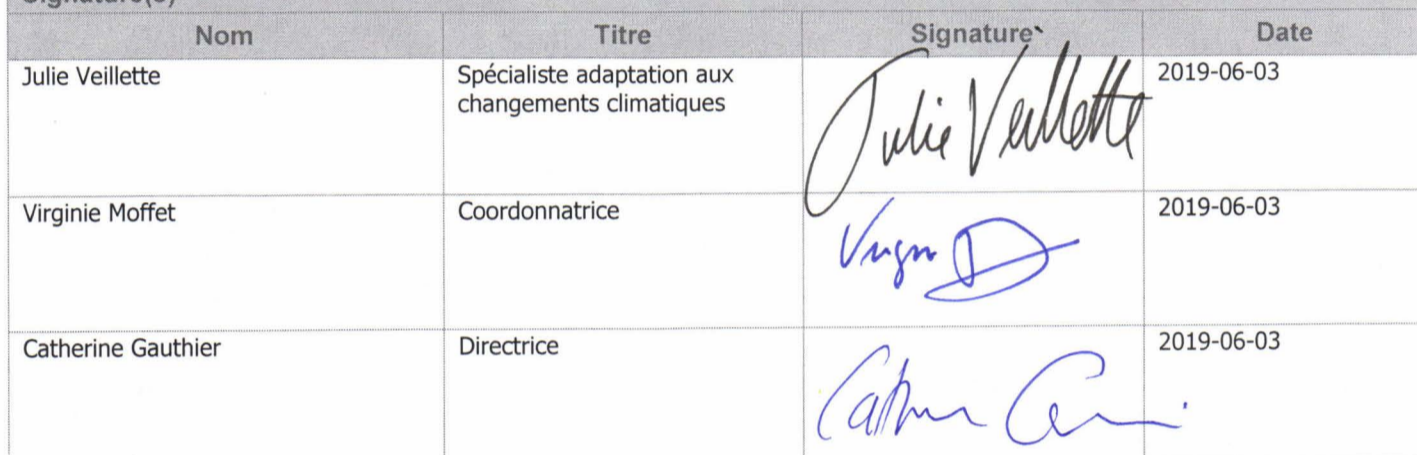 Nom Titre Signature Date
Julie Veillette Spécialiste adaptation aux changements climatiques Julie Veillette 2019-06-03
Virginie Moffet Coordonnatrice 2019-06-03
Catherine Gauthier Directrice 2019-06-03